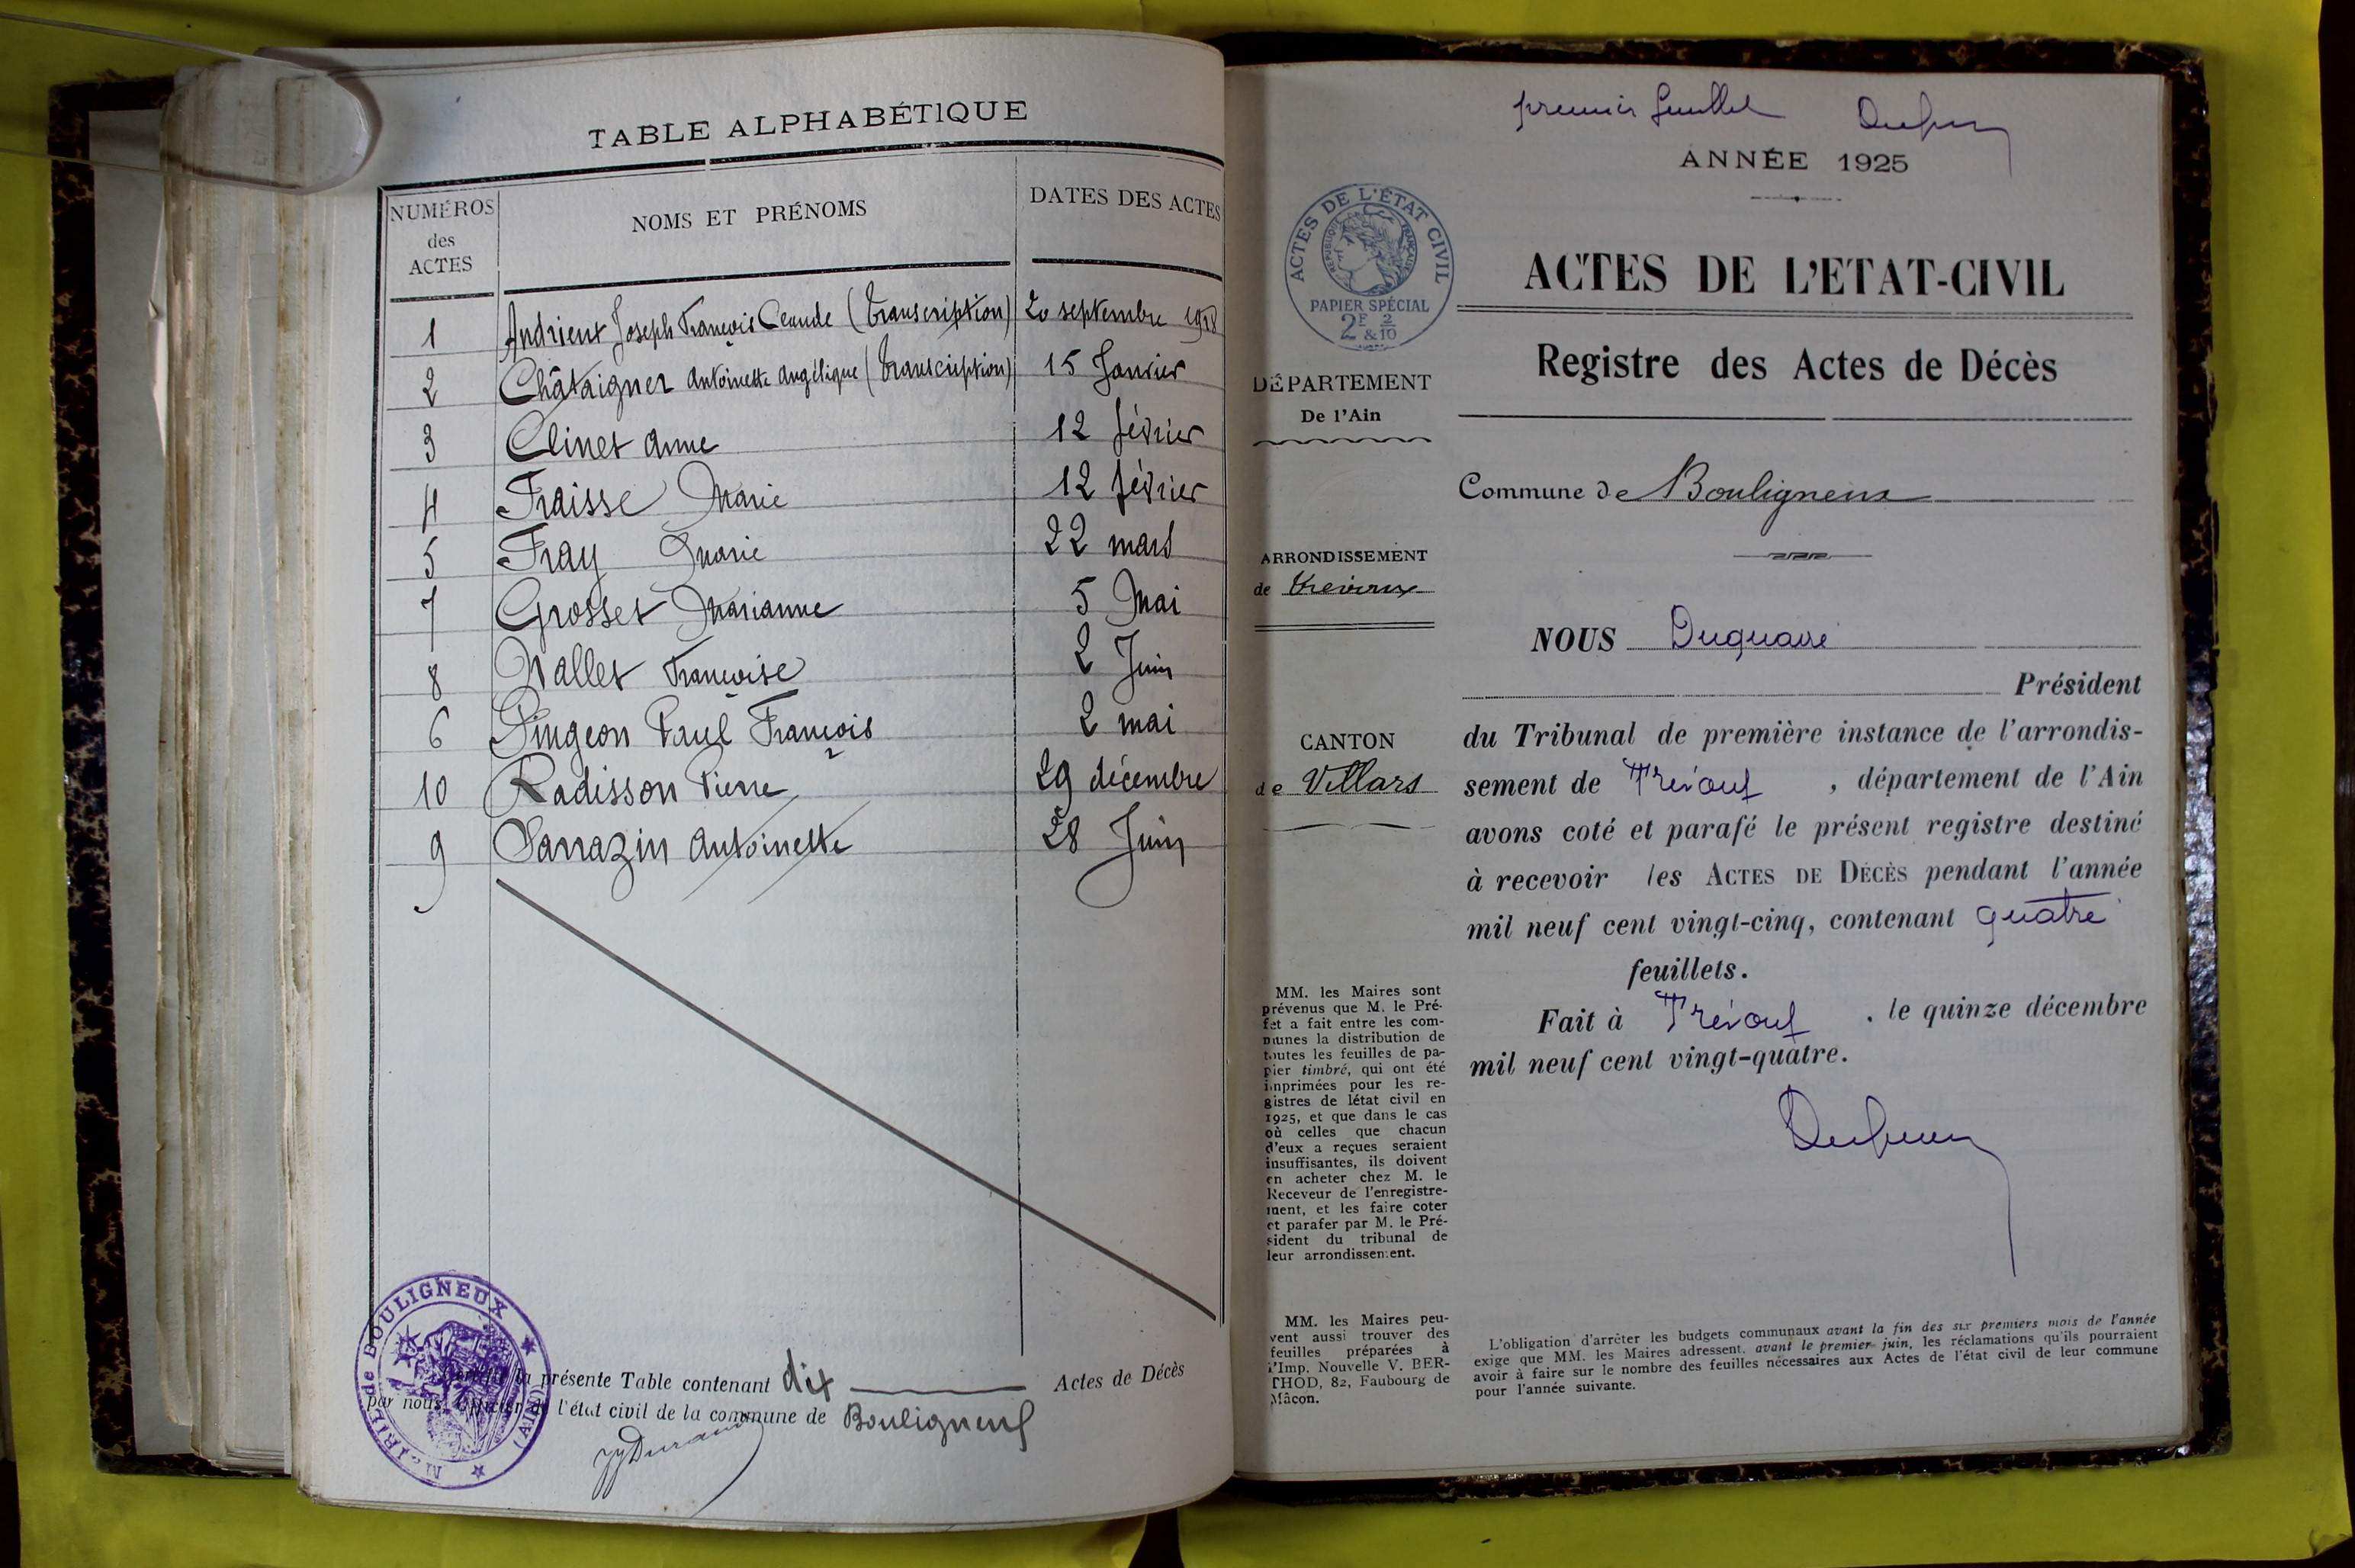 TABLE ALPHABÉTIQUE
NUMÉROS des ACTES NOMS ET PRÉNOMS DATES DES ACTES
1 Andrieux Joseph François Claude (transcription) 20 septembre 1918
2 Châtaigner Antoinette Angélique (transcription) 15 Janvier
3 Clinet Anne 12 février
4 Fraisse Marie 12 février
5 Fray Marie 22 mars
7 Grosset Marianne 5 Mai
8 Mallet Françoise 2 Juin
6 Pingeon Paul François 2 mai
10 Radisson Pierre 29 décembre
9 Sarrazin Antoinette 28 Juin
MAIRIE de BOULIGNEUX (AIN)
la présente Table contenant dix Actes de Décès
par nous, Officier de l'état civil de la commune de Bouligneux
JJDurand
premier feuillet
ANNÉE 1925
ACTES DE L'ÉTAT CIVIL
RÉPUBLIQUE FRANÇAISE
PAPIER SPÉCIAL
2F & 2/10
ACTES DE L'ETAT-CIVIL
Registre des Actes de Décès
DÉPARTEMENT
De l'Ain
Commune de Bouligneux
ARRONDISSEMENT
de Trévoux
CANTON
de Villars
NOUS Duquaire
Président
du Tribunal de première instance de l'arrondis-
sement de Trévoux, département de l'Ain
avons coté et parafé le présent registre destiné
à recevoir les ACTES DE DÉCÈS pendant l'année
mil neuf cent vingt-cinq, contenant quatre
feuillets.
Fait à Trévoux, le quinze décembre
mil neuf cent vingt-quatre.
MM. les Maires sont
prévenus que M. le Pré-
fet a fait entre les com-
munes la distribution de
toutes les feuilles de pa-
pier timbré, qui ont été
imprimées pour les re-
gistres de létat civil en
1925, et que dans le cas
où celles que chacun
d'eux a reçues seraient
insuffisantes, ils doivent
en acheter chez M. le
Receveur de l'enregistre-
ment, et les faire coter
et parafer par M. le Pré-
sident du tribunal de
leur arrondissement.
MM. les Maires peu-
vent aussi trouver des
feuilles préparées à
l'Imp. Nouvelle V. BER-
THOD, 82, Faubourg de
Mâcon.
L'obligation d'arrêter les budgets communaux avant la fin des six premiers mois de l'année
exige que MM. les Maires adressent, avant le premier juin, les réclamations qu'ils pourraient
avoir à faire sur le nombre des feuilles nécessaires aux Actes de l'état civil de leur commune
pour l'année suivante.